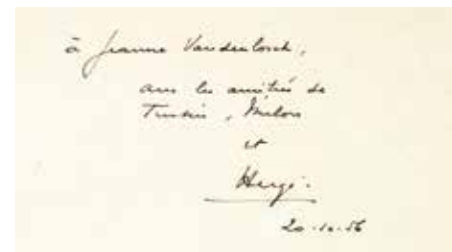 à Jeanne Vandenbosch,
avec les amitiés de
Tintin, Milou
et
Hergé.
20-12-56